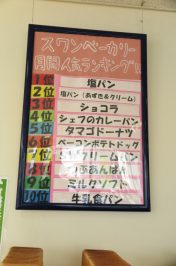 スワンベーカリー
月間人気ランキング!!
1位 塩パン
2位 塩パン(あずき&クリーム)
3位 ショコラ
4位 シェフのカレーパン
5位 タマゴドーナツ
6位 ベーコンポテトドッグ
7位 クリームパン
8位 つぶあんぱん
9位 ミルクソフト
10位 牛乳食パン